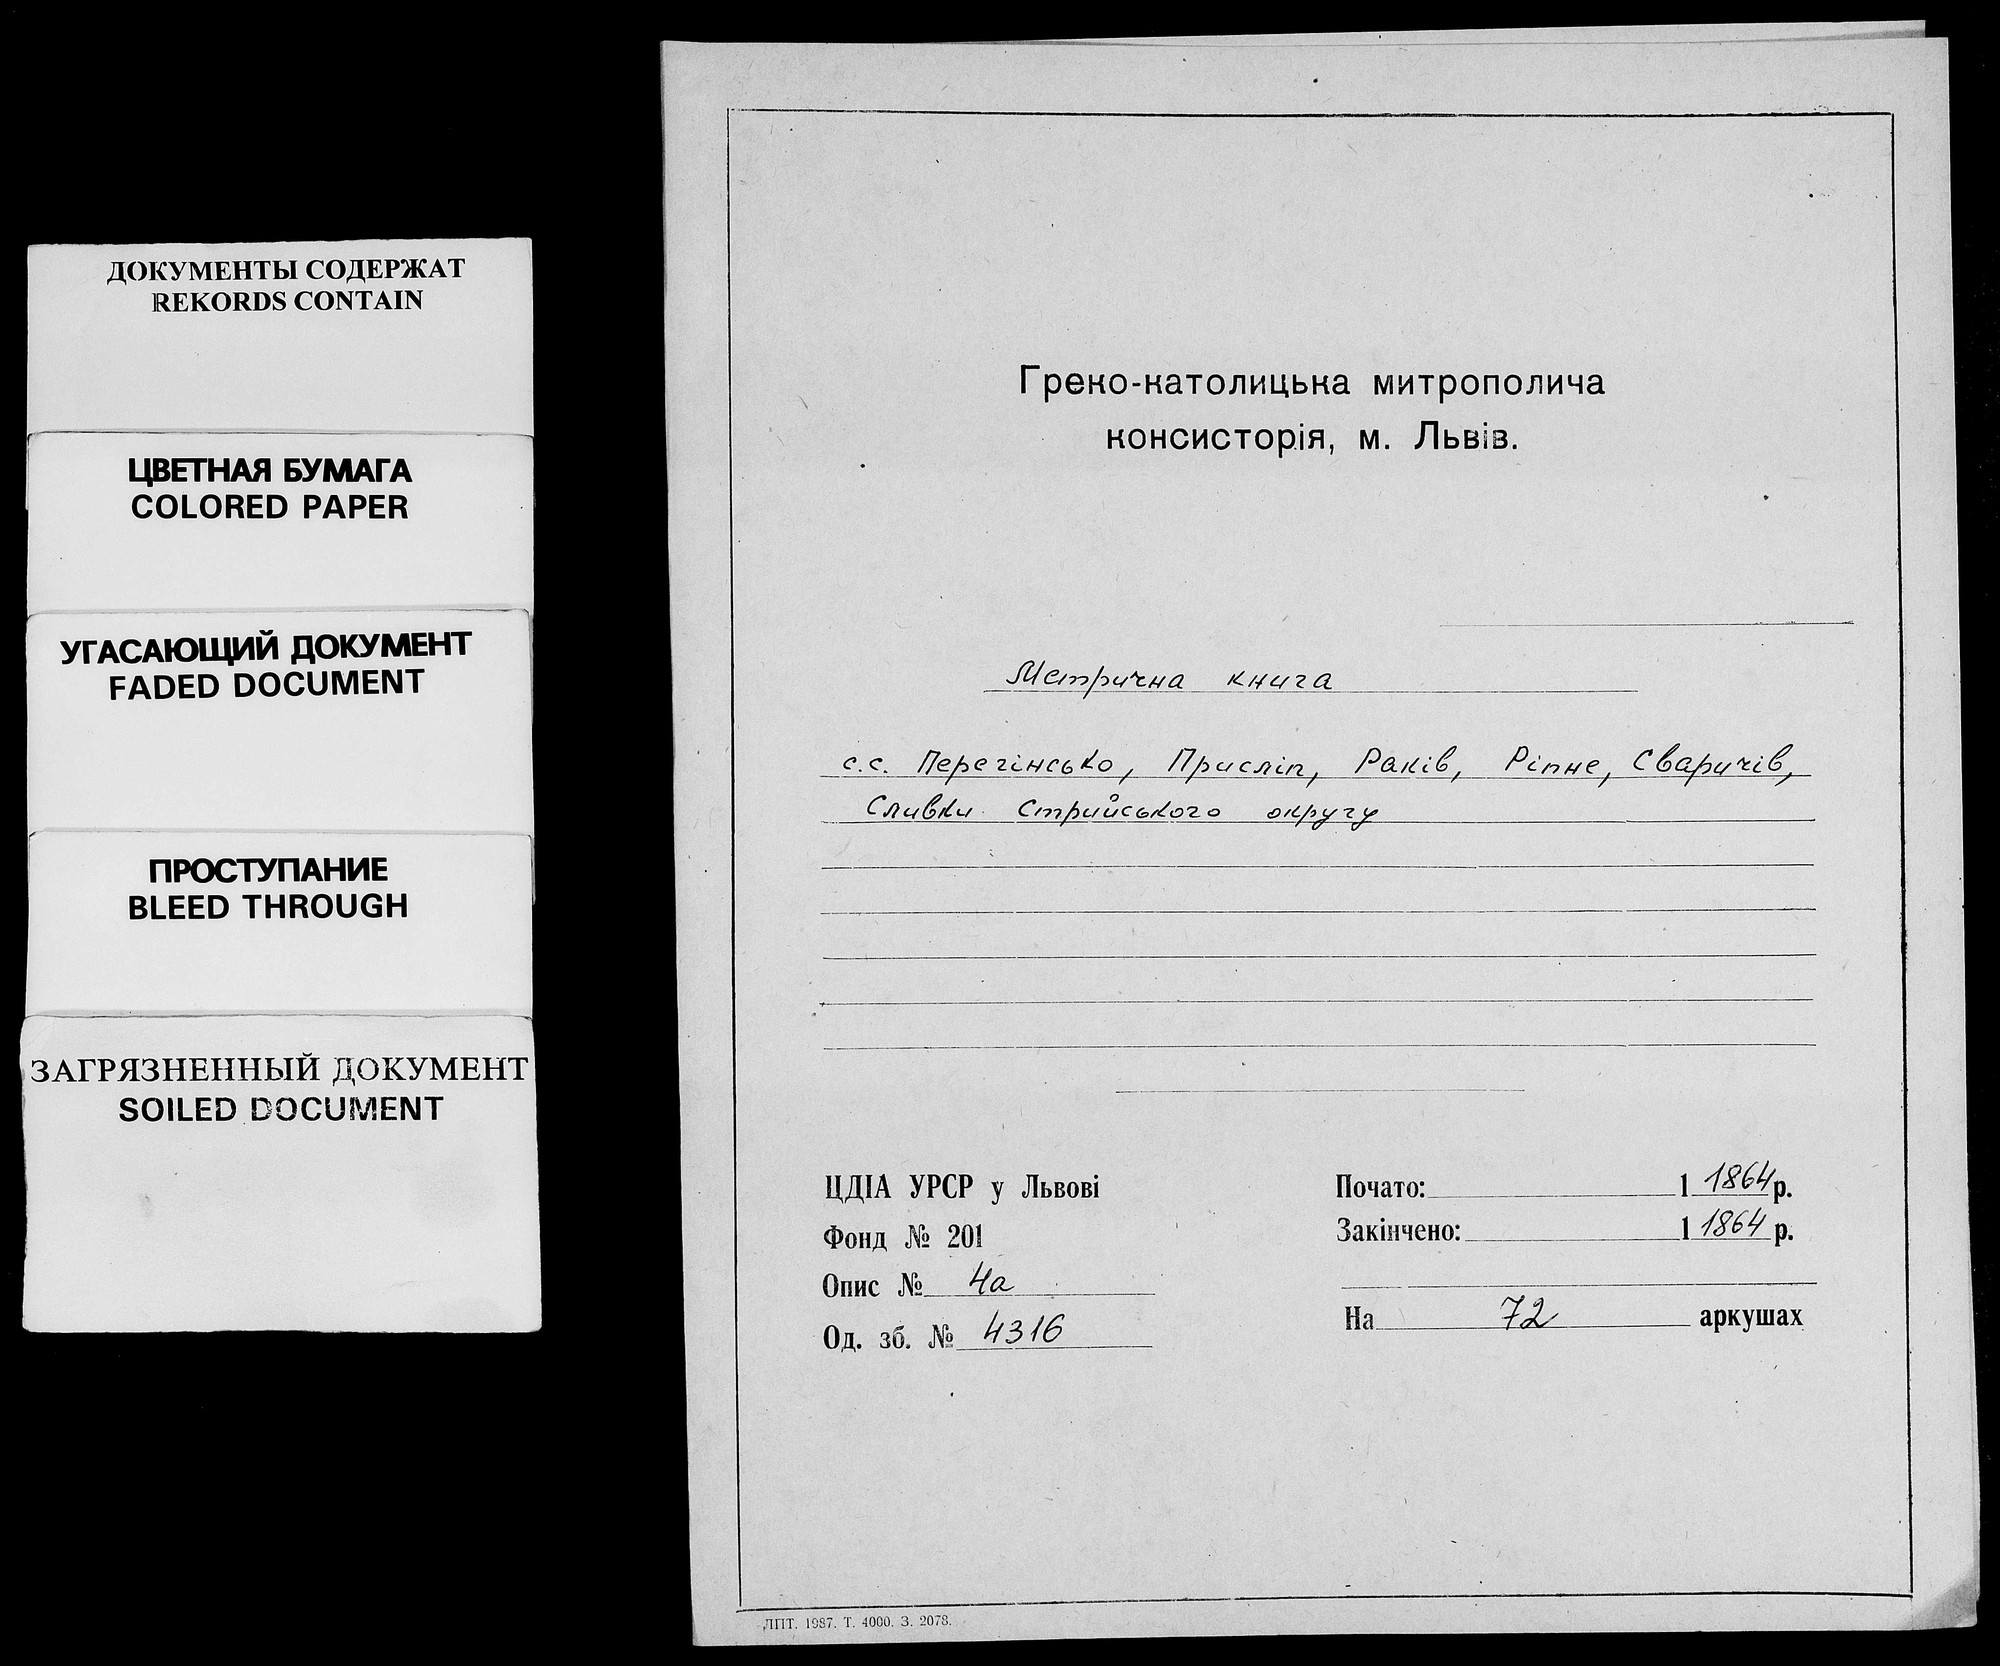 ДОКУМЕНТЫ СОДЕРЖАТ
REKORDS CONTAIN
ЦВЕТНАЯ БУМАГА
COLORED PAPER
УГАСАЮЩИЙ ДОКУМЕНТ
FADED DOCUMENT
ПРОСТУПАНИЕ
BLEED THROUGH
ЗАГРЯЗНЕННЫЙ ДОКУМЕНТ
SOILED DOCUMENT
Греко-католицька митрополича
консисторія, м. Львів.
Метрична книга
с.с. Перегінсько, Присліп, Раків, Ріпне, Сваричів,
Сливки Стрийського округу
ЦДІА УРСР у Львові
Фонд № 201
Опис № 4а
Од. зб. № 4316
Почато: 1 1864 р.
Закінчено: 1 1864 р.
На 72 аркушах
ЛПТ. 1987. Т. 4000. З. 2078.